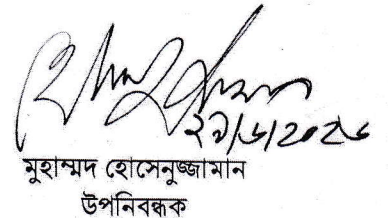 ২৯/৬/২০২৬
মুহাম্মদ হোসেনুজ্জামান
উপনিবন্ধক